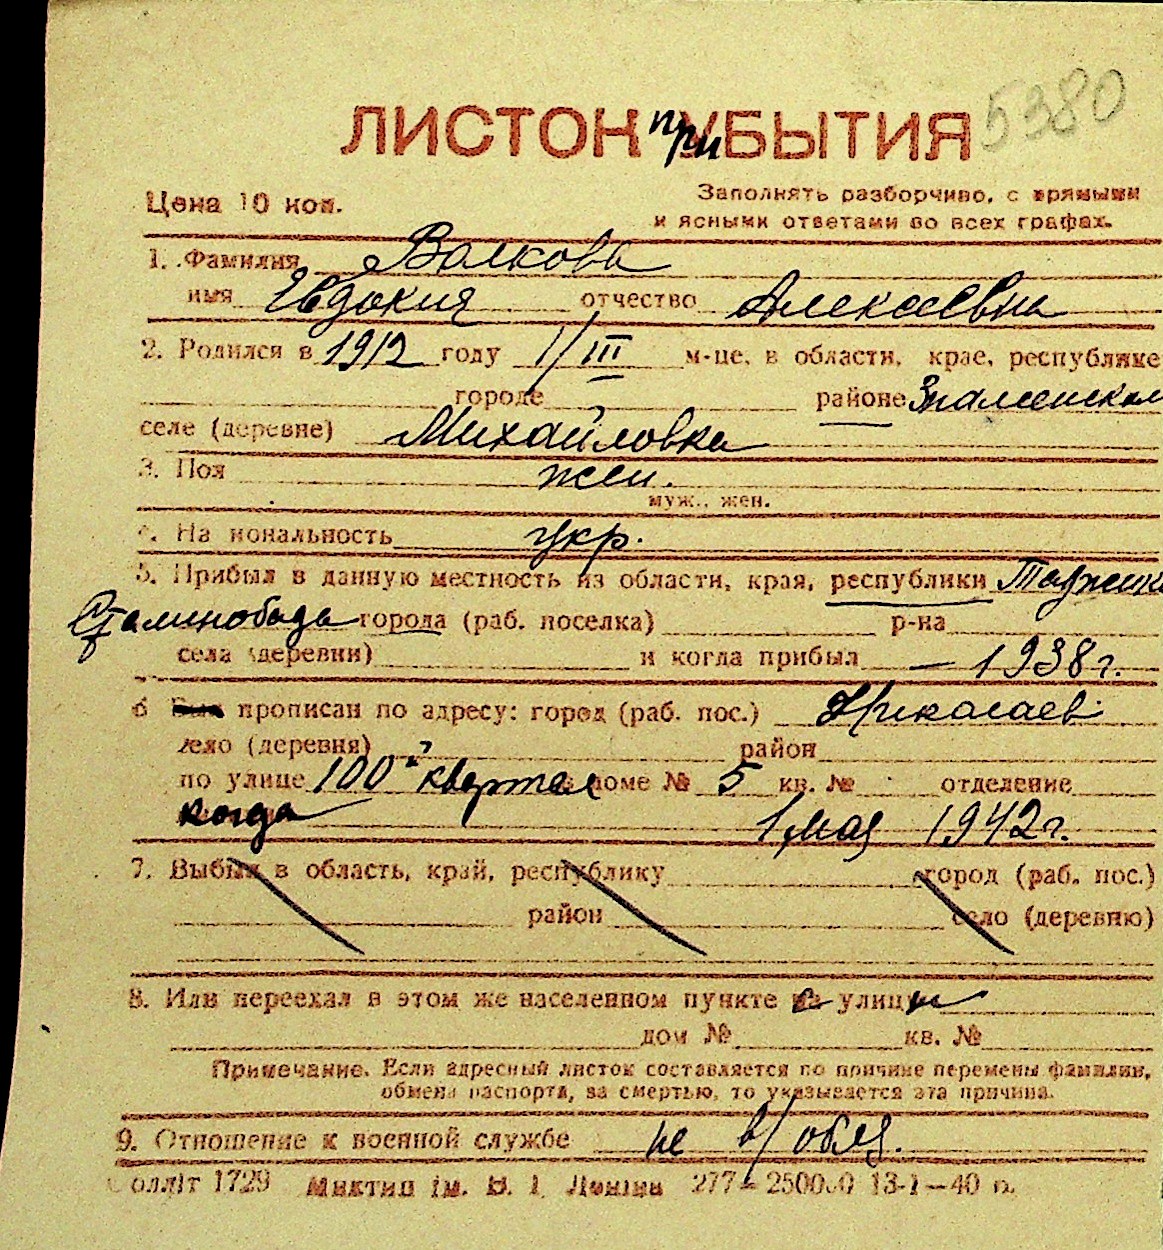 5380
ЛИСТОК при УБЫТИЯ
Цена 10 коп.
Заполнять разборчиво, с прямыми
и ясными ответами во всех графах.
1. Фамилия Волкова
имя Евдокия отчество Алексеевна
2. Родился в 1912 году 1/III м-це, в области, крае, республике
городе районе Знаменском
селе (деревне) Михайловка
3. Пол жен.
муж., жен.
4. Национальность укр.
5. Прибыл в данную местность из области, края, республики Таджик
Сталинобада города (раб. поселка) р-на
села (деревни) и когда прибыл — 1938 г.
6 прописан по адресу: город (раб. пос.) Николаев
село (деревня) район
по улице 100й квартал доме № 5 кв. № отделение
когда 1 мая 1942 г.
7. Выбыл в область, край, республику город (раб. пос.)
район село (деревню)
8. Или переехал в этом же населенном пункте с улицы
дом № кв. №
Примечание. Если адресный листок составляется по причине перемены фамилии,
обмена паспорта, за смертью, то указывается эта причина.
9. Отношение к военной службе не в/обяз.
Солліт 1729 Миктип ім. В. І. Леніна 277 — 250000 13-I—40 р.